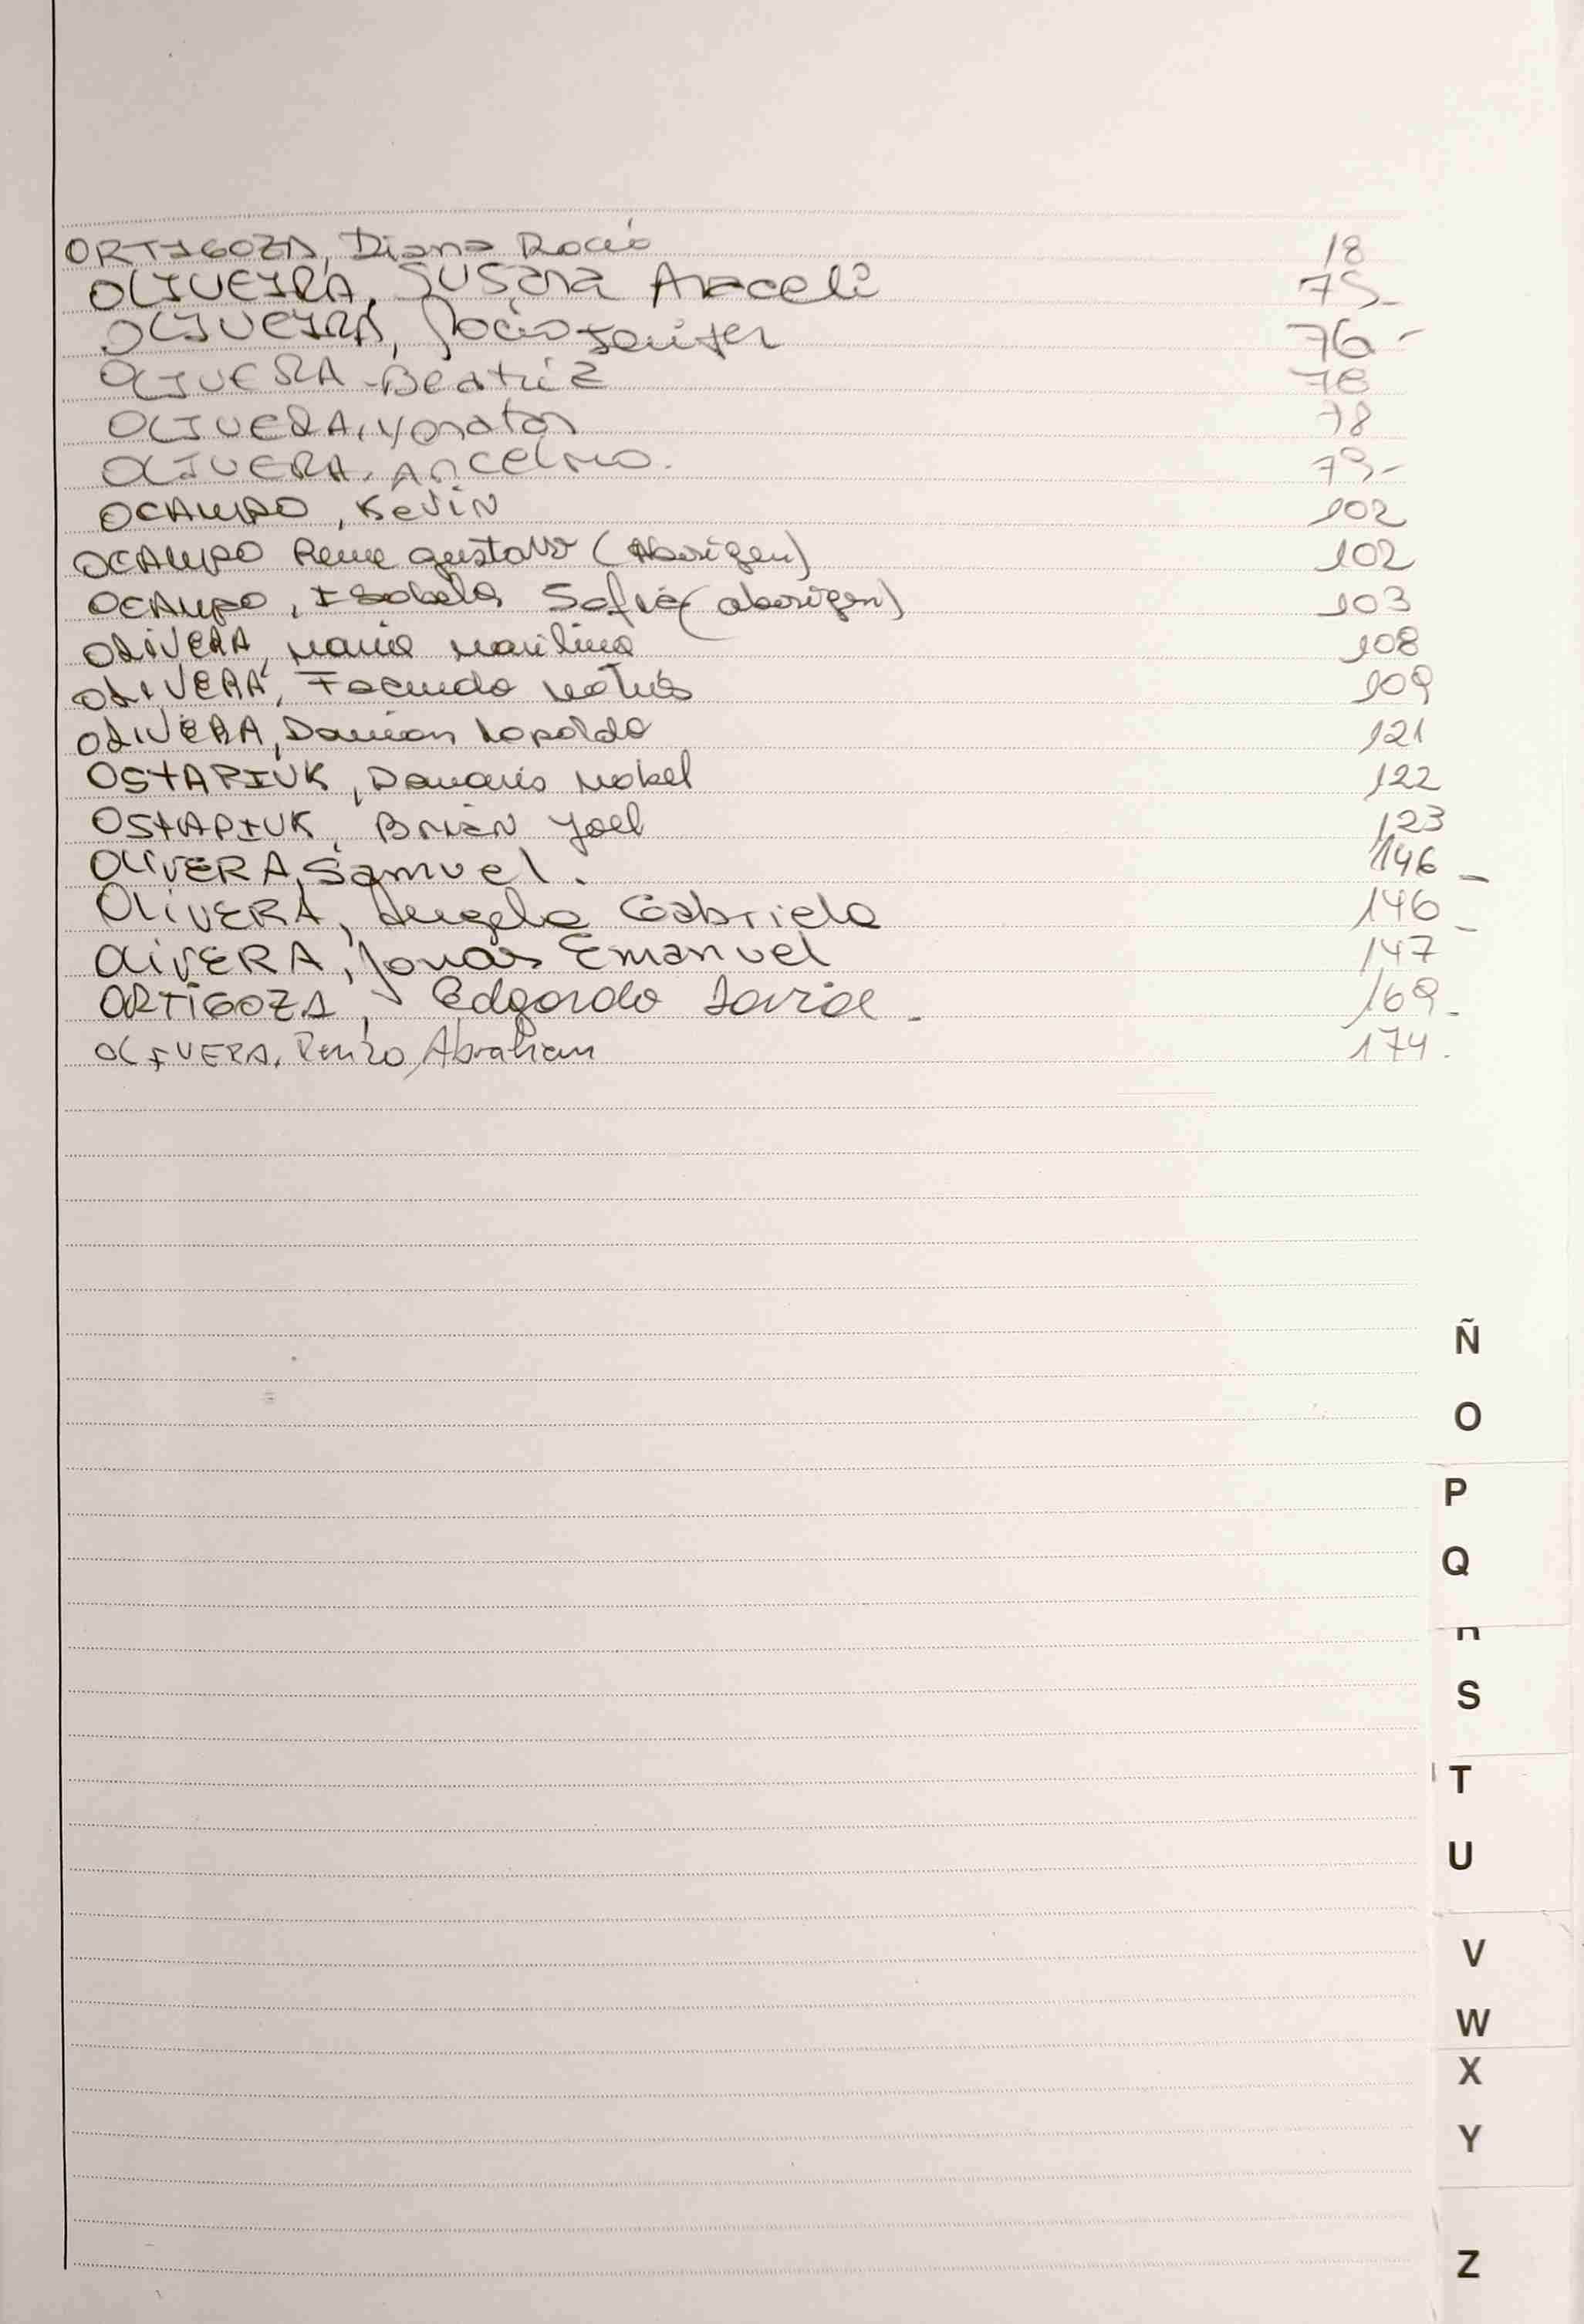 ORTIGOZA, Diana Rocío 18
OLIVEIRA, SUSANA Araceli 75-
OLIVEIRA, Rocío Jenifer 76-
OLIVERA - Beatriz 78
OLIVERA, Yonatan 78
OLIVERA, ANCELMO. 79-
OCAMPO, KEVIN 102
OCAMPO Rene Gustavo (Aborigen) 102
OCAMPO, Isabela Sofia (aborigen) 103
OLIVERA, María Marilina 108
OLIVERA, Facundo Matías 109
OLIVERA, Damian Lopoldo 121
OSTAPIUK, Damaris Mabel 122
OSTAPIUK, BRIAN Joel 123
OLIVERA, Samuel. 146 -
OLIVERA, Angela Gabriela 146 -
OLIVERA, Jonas Emanuel 147
ORTIGOZA, Edgardo Javier - 169 -
OLIVERA, Renzo Abraham 174.
Ñ
O
P
Q
S
T
U
V
W
X
Y
Z